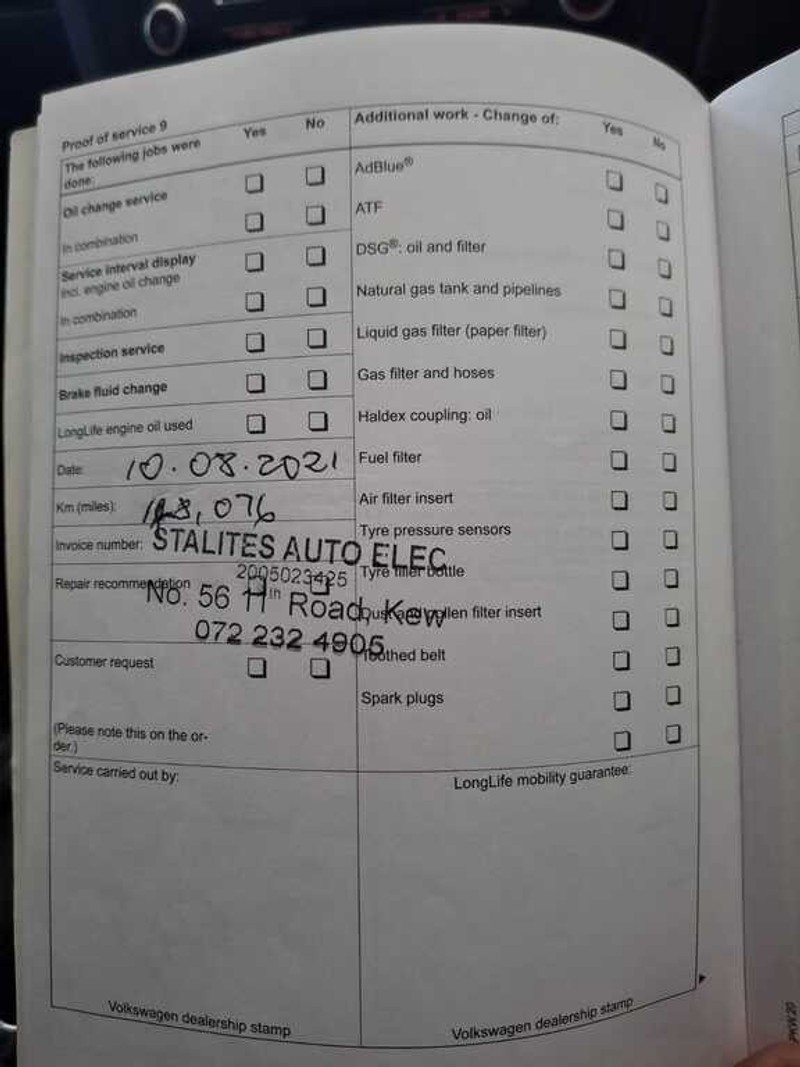 Proof of service 9
The following jobs were done:
Yes
No
Oil change service
In combination
Service interval display
incl. engine oil change
In combination
Inspection service
Brake fluid change
LongLife engine oil used
Date: 10.08.2021
Km (miles): 076
Invoice number:
STALITES AUTO ELEC
2005023425
Repair recommendation
No. 56 11th Road, Kew
072 232 4905
Customer request
(Please note this on the or-
der.)
Service carried out by:
Volkswagen dealership stamp
Additional work - Change of:
Yes
No
AdBlue®
ATF
DSG®: oil and filter
Natural gas tank and pipelines
Liquid gas filter (paper filter)
Gas filter and hoses
Haldex coupling: oil
Fuel filter
Air filter insert
Tyre pressure sensors
Tyre filler bottle
Dust and pollen filter insert
Toothed belt
Spark plugs
LongLife mobility guarantee:
Volkswagen dealership stamp